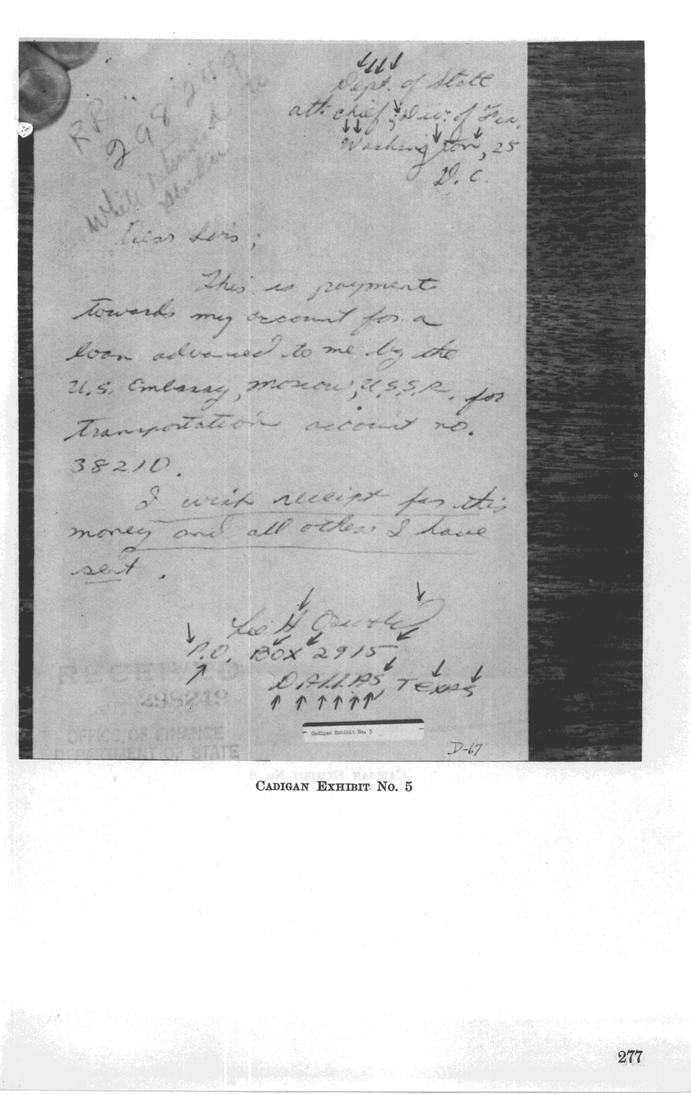 RR
298249
While
Dept. of State
att: chief, Div. of Fin.
Washington, 25
D.C.
Dear Sirs;
This is payment
towards my account for a
loan advanced to me by the
U.S. Embassy, Moscow, U.S.S.R. for
transportation account no.
38210.
I wish receipt for this
money and all others I have
sent.
Lee H Oswald
P.O. BOX 2915
DALLAS TEXAS
RECEIVED
298249
OFFICE OF FINANCE
DEPARTMENT OF STATE
Cadigan Exhibit No. 5
D-67
CADIGAN EXHIBIT NO. 5
277